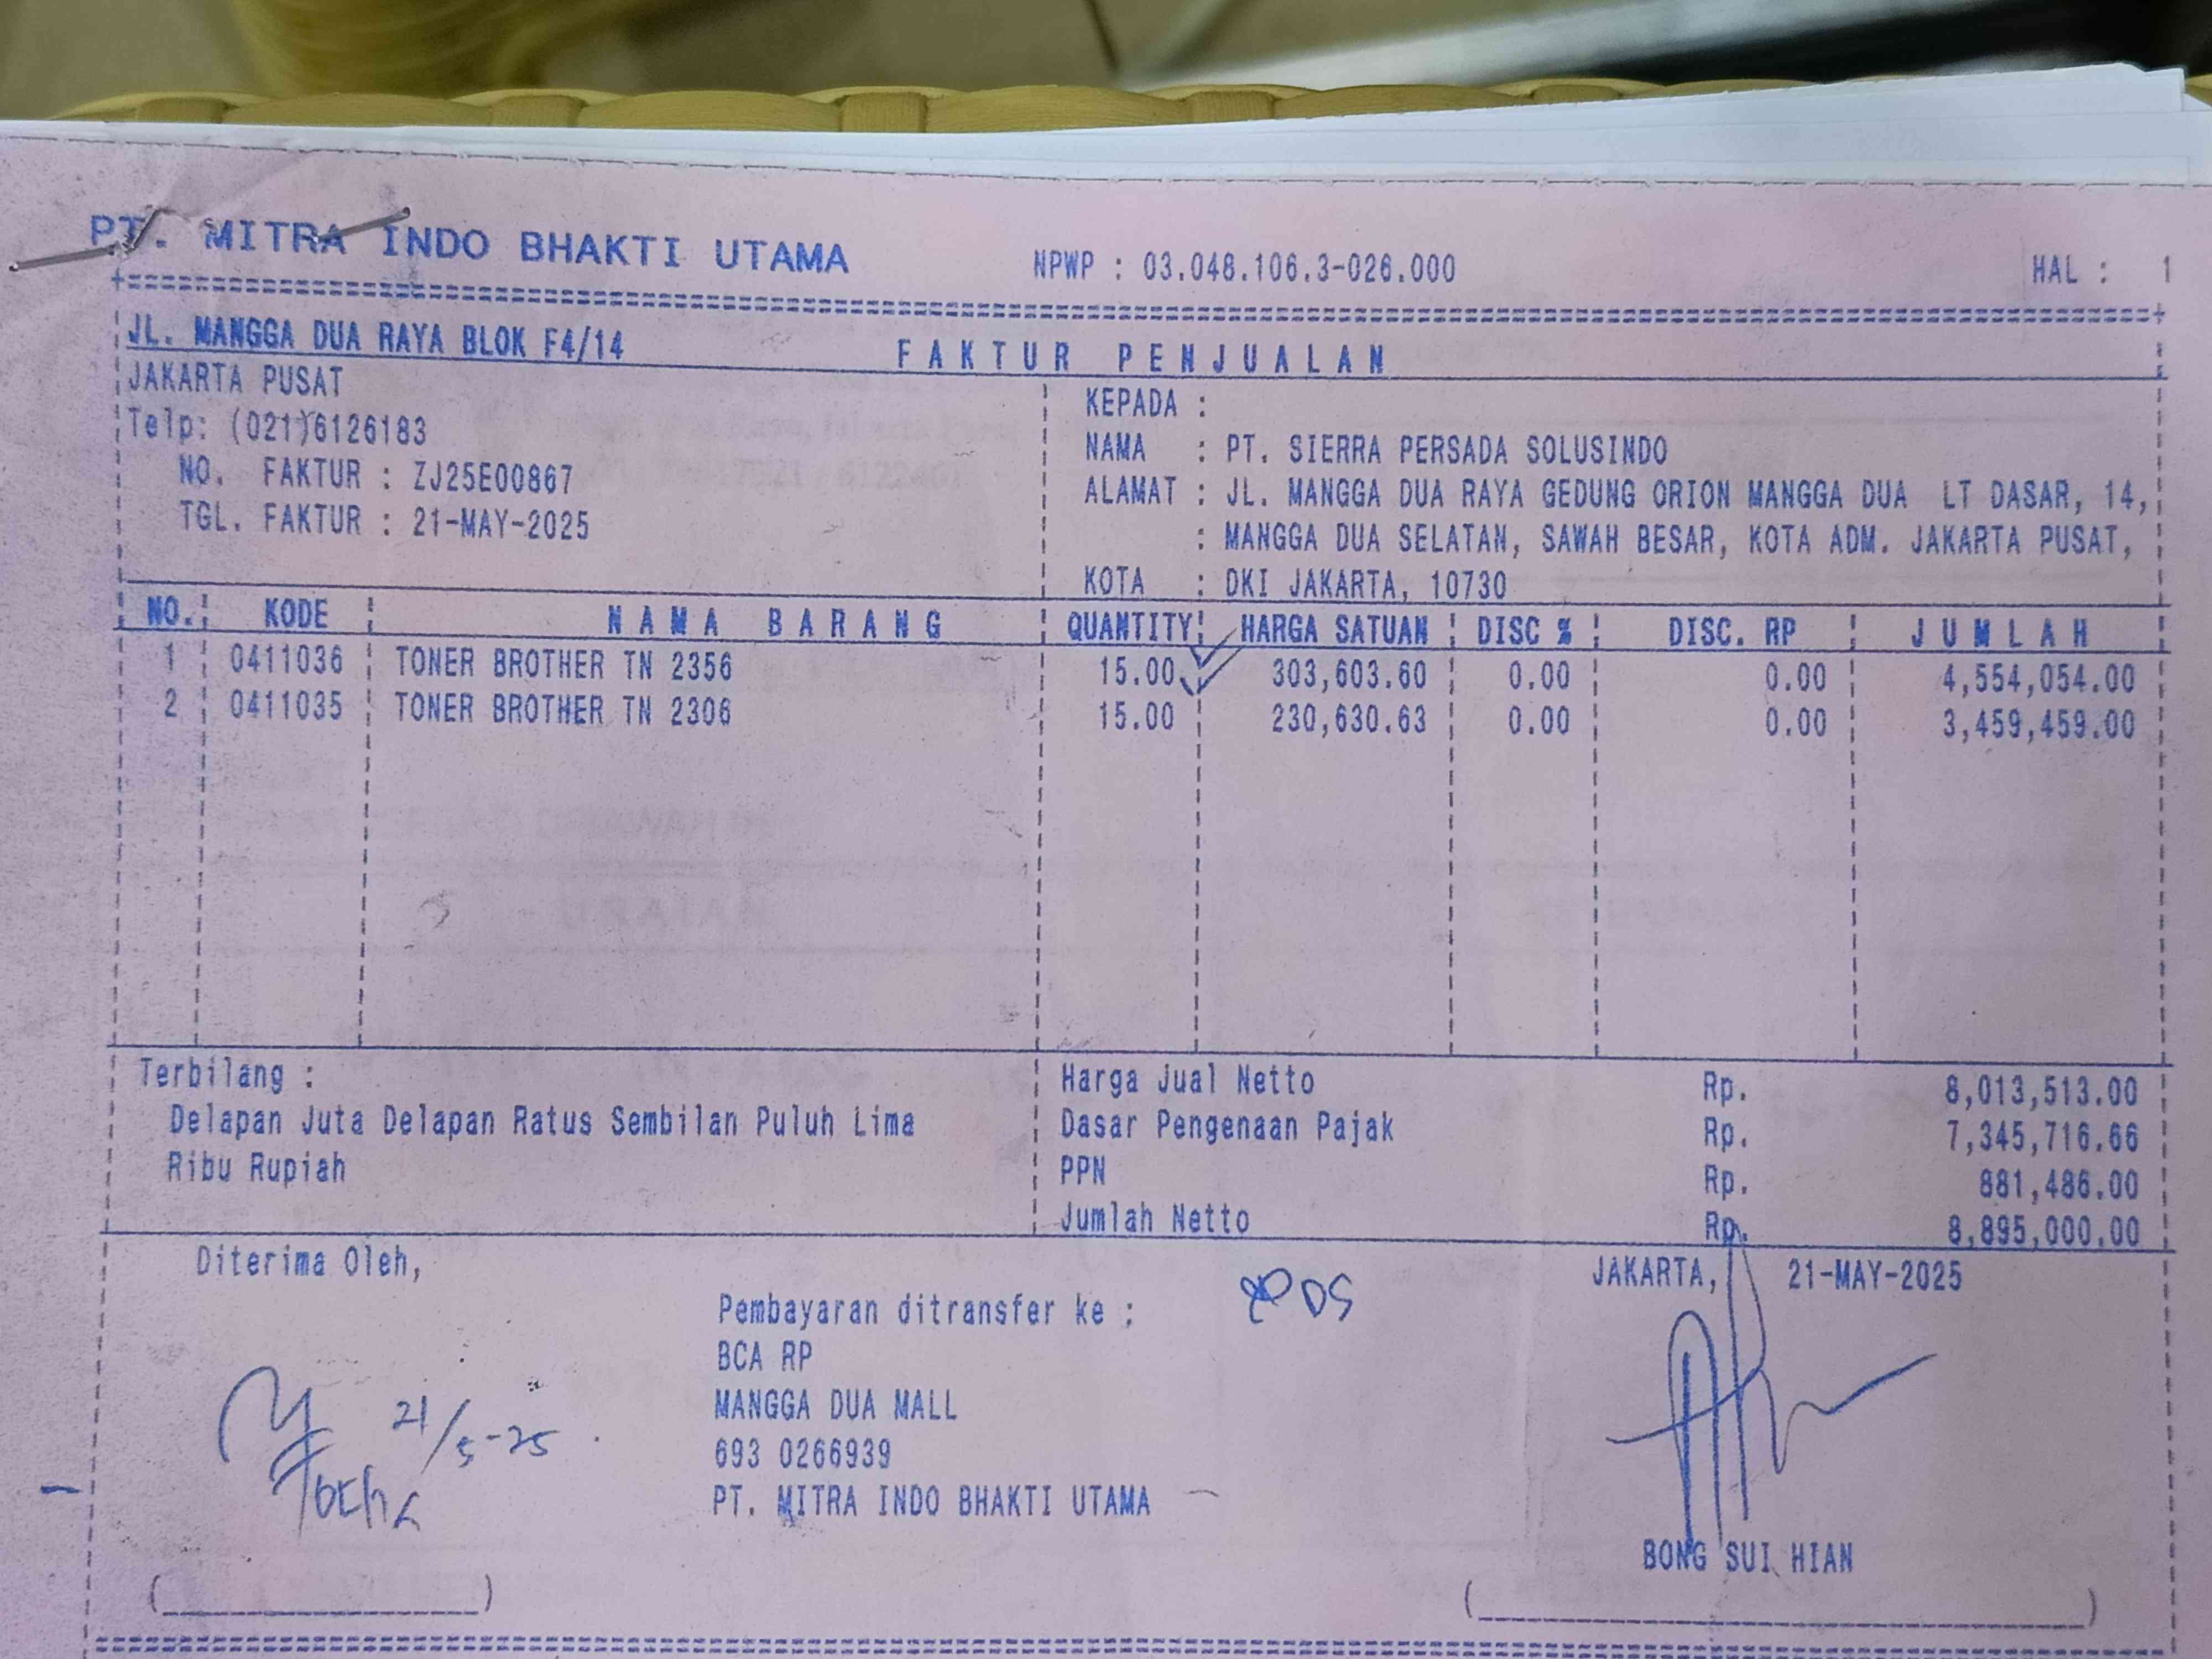 PT. MITRA INDO BHAKTI UTAMA NPWP : 03.048.106.3-026.000 HAL : 1
JL. MANGGA DUA RAYA BLOK F4/14
FAKTUR PENJUALAN
JAKARTA PUSAT
Telp: (021)6126183
NO. FAKTUR : ZJ25E00867
TGL. FAKTUR : 21-MAY-2025
KEPADA :
NAMA : PT. SIERRA PERSADA SOLUSINDO
ALAMAT : JL. MANGGA DUA RAYA GEDUNG ORION MANGGA DUA LT DASAR, 14,
: MANGGA DUA SELATAN, SAWAH BESAR, KOTA ADM. JAKARTA PUSAT,
KOTA : DKI JAKARTA, 10730
NO. KODE NAMA BARANG QUANTITY HARGA SATUAN DISC % DISC. RP JUMLAH
1 0411036 TONER BROTHER TN 2356 15.00 303,603.60 0.00 0.00 4,554,054.00
2 0411035 TONER BROTHER TN 2306 15.00 230,630.63 0.00 0.00 3,459,459.00
Terbilang :
Delapan Juta Delapan Ratus Sembilan Puluh Lima
Ribu Rupiah
Harga Jual Netto Rp. 8,013,513.00
Dasar Pengenaan Pajak Rp. 7,345,716.66
PPN Rp. 881,486.00
Jumlah Netto Rp. 8,895,000.00
Diterima Oleh,
21/5-25
Pembayaran ditransfer ke :
BCA RP
MANGGA DUA MALL
693 0266939
PT. MITRA INDO BHAKTI UTAMA
JAKARTA, 21-MAY-2025
BONG SUI HIAN